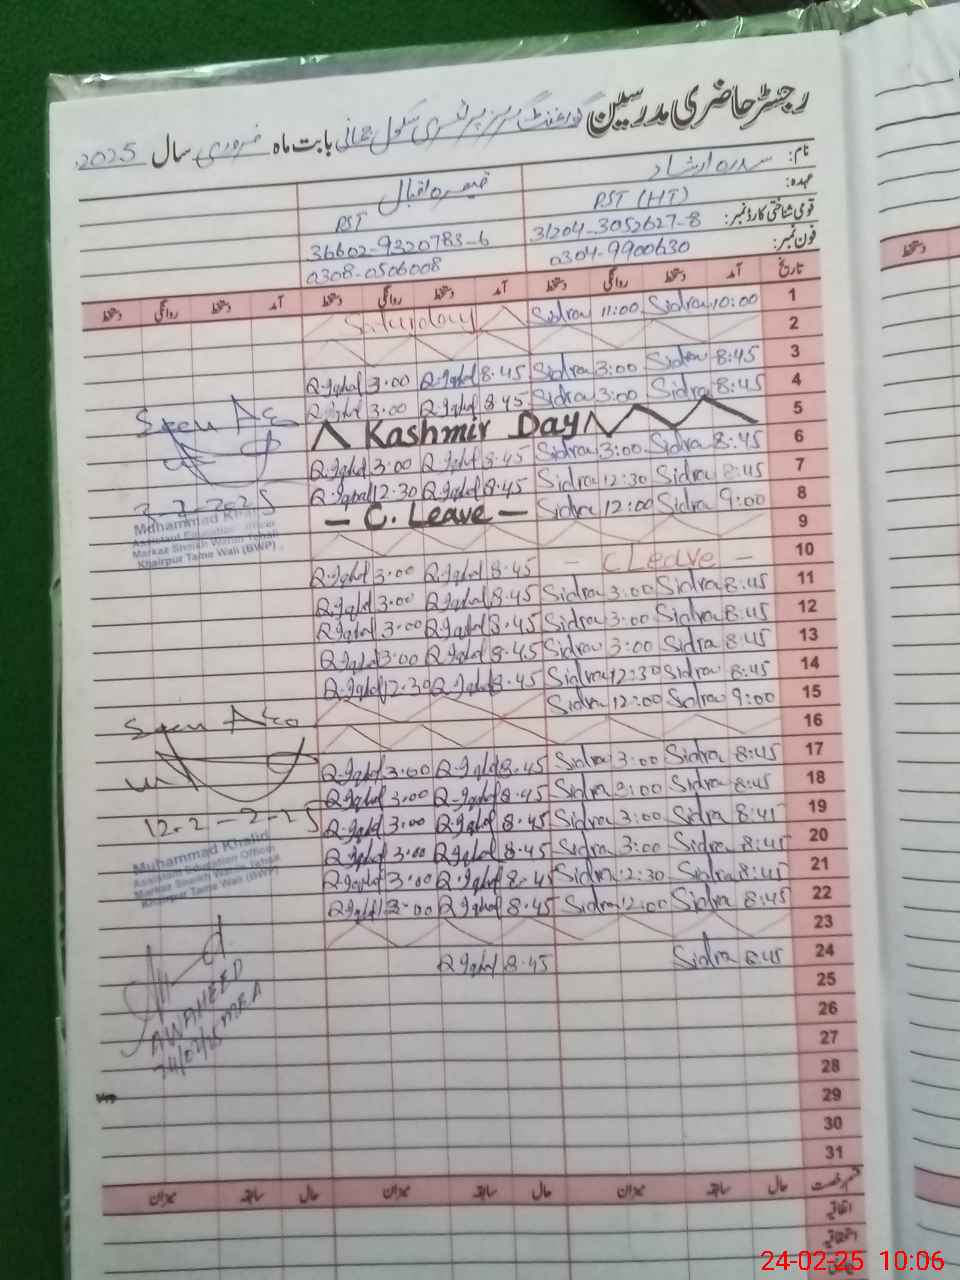 رجسٹر حاضری مدرسین گورنمنٹ گرلز پرائمری سکول بابت ماہ فروری سال 2025
نام: سدرہ ارشاد اقبال
عہدہ: PST (HT) PST
قومی شناختی کارڈ نمبر: 31204-3052627-8 36602-9320783-6
فون نمبر: 0304-9900630 0308-0506008
تاریخ آمد دستخط روانگی دستخط آمد دستخط روانگی دستخط آمد دستخط روانگی دستخط
Saturday Sidra 11:00 Sidra 10:00 1
2
Q.Iqbal 3:00 Q.Iqbal 8:45 Sidra 3:00 Sidra 8:45 3
Q.Iqbal 3:00 Q.Iqbal 8:45 Sidra 3:00 Sidra 8:45 4
Kashmir Day 5
Q.Iqbal 3:00 Q.Iqbal 8:45 Sidra 3:00 Sidra 8:45 6
Q.Iqbal 12:30 Q.Iqbal 8:45 Sidra 12:30 Sidra 8:45 7
– C. Leave – Sidra 12:00 Sidra 9:00 8
9
Q.Iqbal 3:00 Q.Iqbal 8:45 – C Leave – 10
Q.Iqbal 3:00 Q.Iqbal 8:45 Sidra 3:00 Sidra 8:45 11
Q.Iqbal 3:00 Q.Iqbal 8:45 Sidra 3:00 Sidra 8:45 12
Q.Iqbal 3:00 Q.Iqbal 8:45 Sidra 3:00 Sidra 8:45 13
Q.Iqbal 12:30 Q.Iqbal 8:45 Sidra 12:30 Sidra 8:45 14
Sidra 12:00 Sidra 9:00 15
16
Q.Iqbal 3:00 Q.Iqbal 8:45 Sidra 3:00 Sidra 8:45 17
Q.Iqbal 3:00 Q.Iqbal 8:45 Sidra 3:00 Sidra 8:45 18
Q.Iqbal 3:00 Q.Iqbal 8:45 Sidra 3:00 Sidra 8:45 19
Q.Iqbal 3:00 Q.Iqbal 8:45 Sidra 3:00 Sidra 8:45 20
Q.Iqbal 3:00 Q.Iqbal 8:45 Sidra 12:30 Sidra 8:45 21
Q.Iqbal Q.Iqbal 8:45 Sidra 12:00 Sidra 8:45 22
23
Q.Iqbal 8:45 Sidra 8:45 24
25
26
27
28
29
30
31
Seen
3-2-2025
Muhammad Khalid
Assistant Education Officer
Markaz Sheikh Wahan Tehsil
Khairpur Tame Wali (BWP)
Seen
12-2-25
Muhammad Khalid
Assistant Education Officer
Markaz Sheikh Wahan Tehsil
Khairpur Tame Wali (BWP)
A WAHEED
24/02/25 MEA
قسم رخصت حال سابقہ میزان حال سابقہ میزان حال سابقہ میزان
اتفاقیہ
استحقاقیہ
24-02-25 10:06